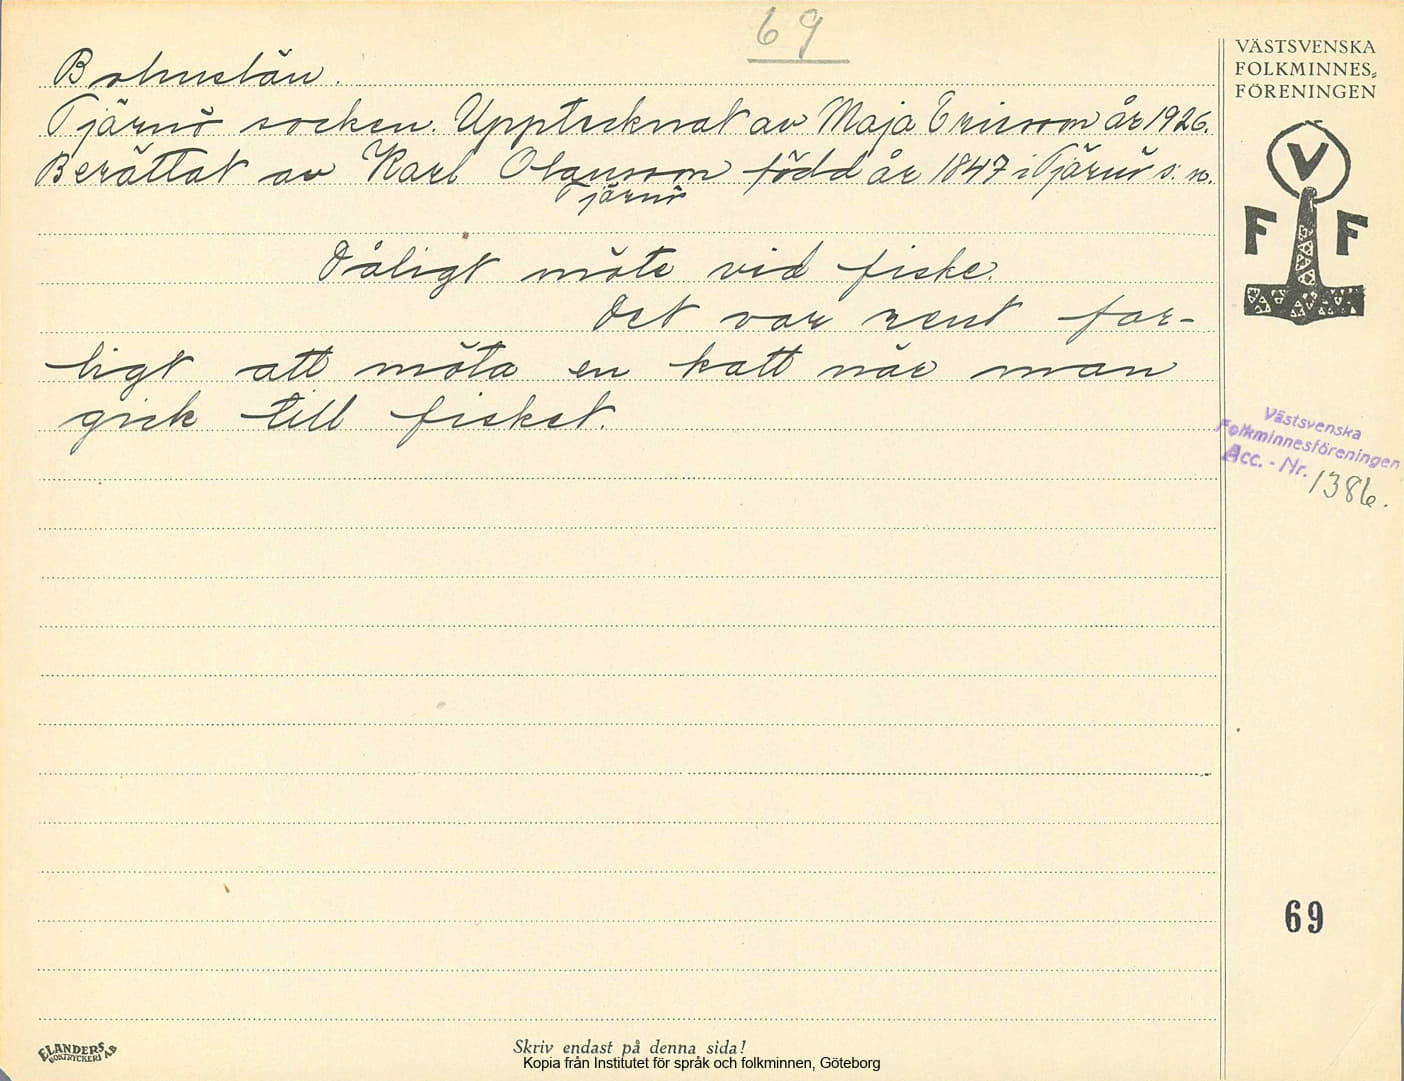 69
Bohuslän.
Tjärnö socken. Upptecknat av Maja Ericsson år 1926.
Berättat av Karl Olausson född år 1847 i Tjärnö s:n.
Tjärnö
Dåligt möte vid fiske.
Det var rent far-
ligt att möta en katt när man
gick till fisket.
VÄSTSVENSKA
FOLKMINNES-
FÖRENINGEN
V
F F
Västsvenska
Folkminnesföreningen
Acc. - Nr. 1386.
69
ELANDERS
BOKTRYCKERI AB
Skriv endast på denna sida!
Kopia från Institutet för språk och folkminnen, Göteborg